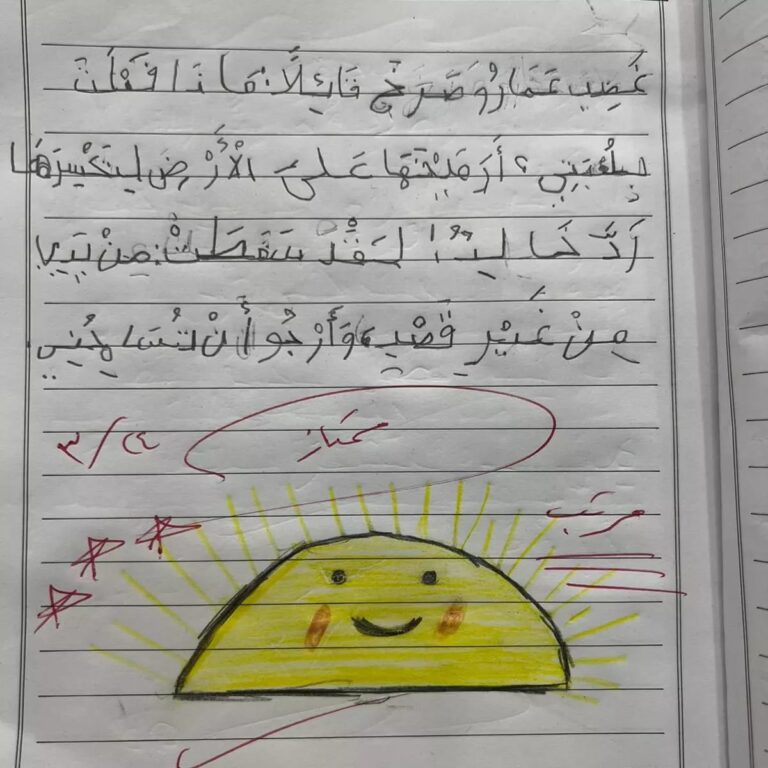 غَضِبَ عَمَارُ وَصَرَخَ قَائِلًا: مَاذَا فَعَلْتَ
بِلُعْبَتِي؟ أَرَمَيْتَهَا عَلَى الْأَرْضِ لِتَكْسِرَهَا
رَدَّ خَالِدُ: لَقَدْ سَقَطَتْ مِنْ يَدِي
مِنْ غَيْرِ قَصْدٍ، وَأَرْجُو أَنْ تُسَامِحَنِي
ممتاز
٢٤/٣
مرتب